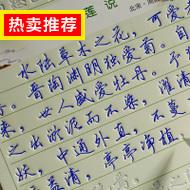 莲说
北宋·周
热卖推荐
水陆草木之花，可爱
晋陶渊明独爱菊。自
来，世人盛爱牡丹。予
之出淤泥而不染，濯清
妖，中通外直，不蔓
益清，亭亭净植